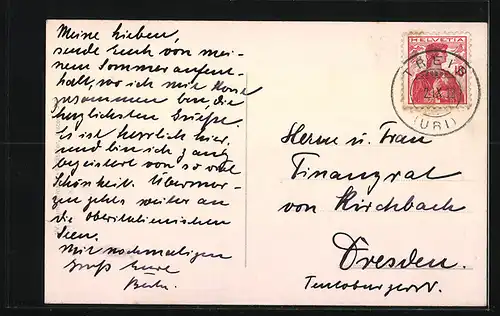 Meine Lieben,
sende Euch von mei-
nem Sommeraufent-
halt, wo ich mit
zusammen bin, die
herzlichsten Grüße.
Es ist herrlich hier,
und bin ich ganz
begeistert von so viel
Schönheit. Übermor-
gen gehts weiter an
die oberitalienischen
Seen.
Mit nochmaligem
Gruß Eure
HELVETIA
(URI)
Herrn u. Frau
Finanzrat
von Kirchbach
Dresden.